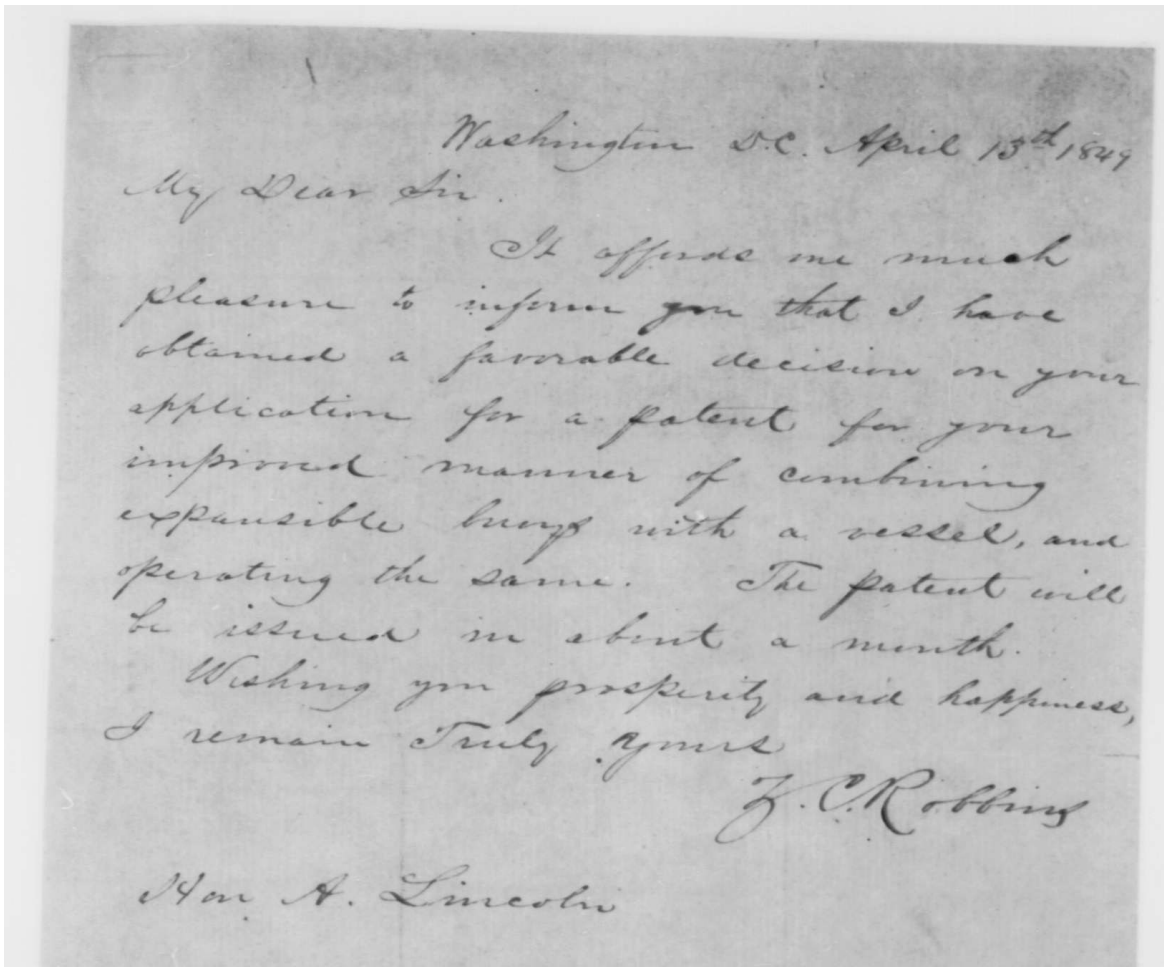 Washington D.C. April 13th 1849
My Dear Sir.
It affords me much
pleasure to inform you that I have
obtained a favorable decision on your
application for a patent for your
improved manner of combining
expansible buoys with a vessel, and
operating the same. The patent will
be issued in about a month.
Wishing you prosperity and happiness,
I remain Truly Yours
Z. C. Robbins
Hon A. Lincoln